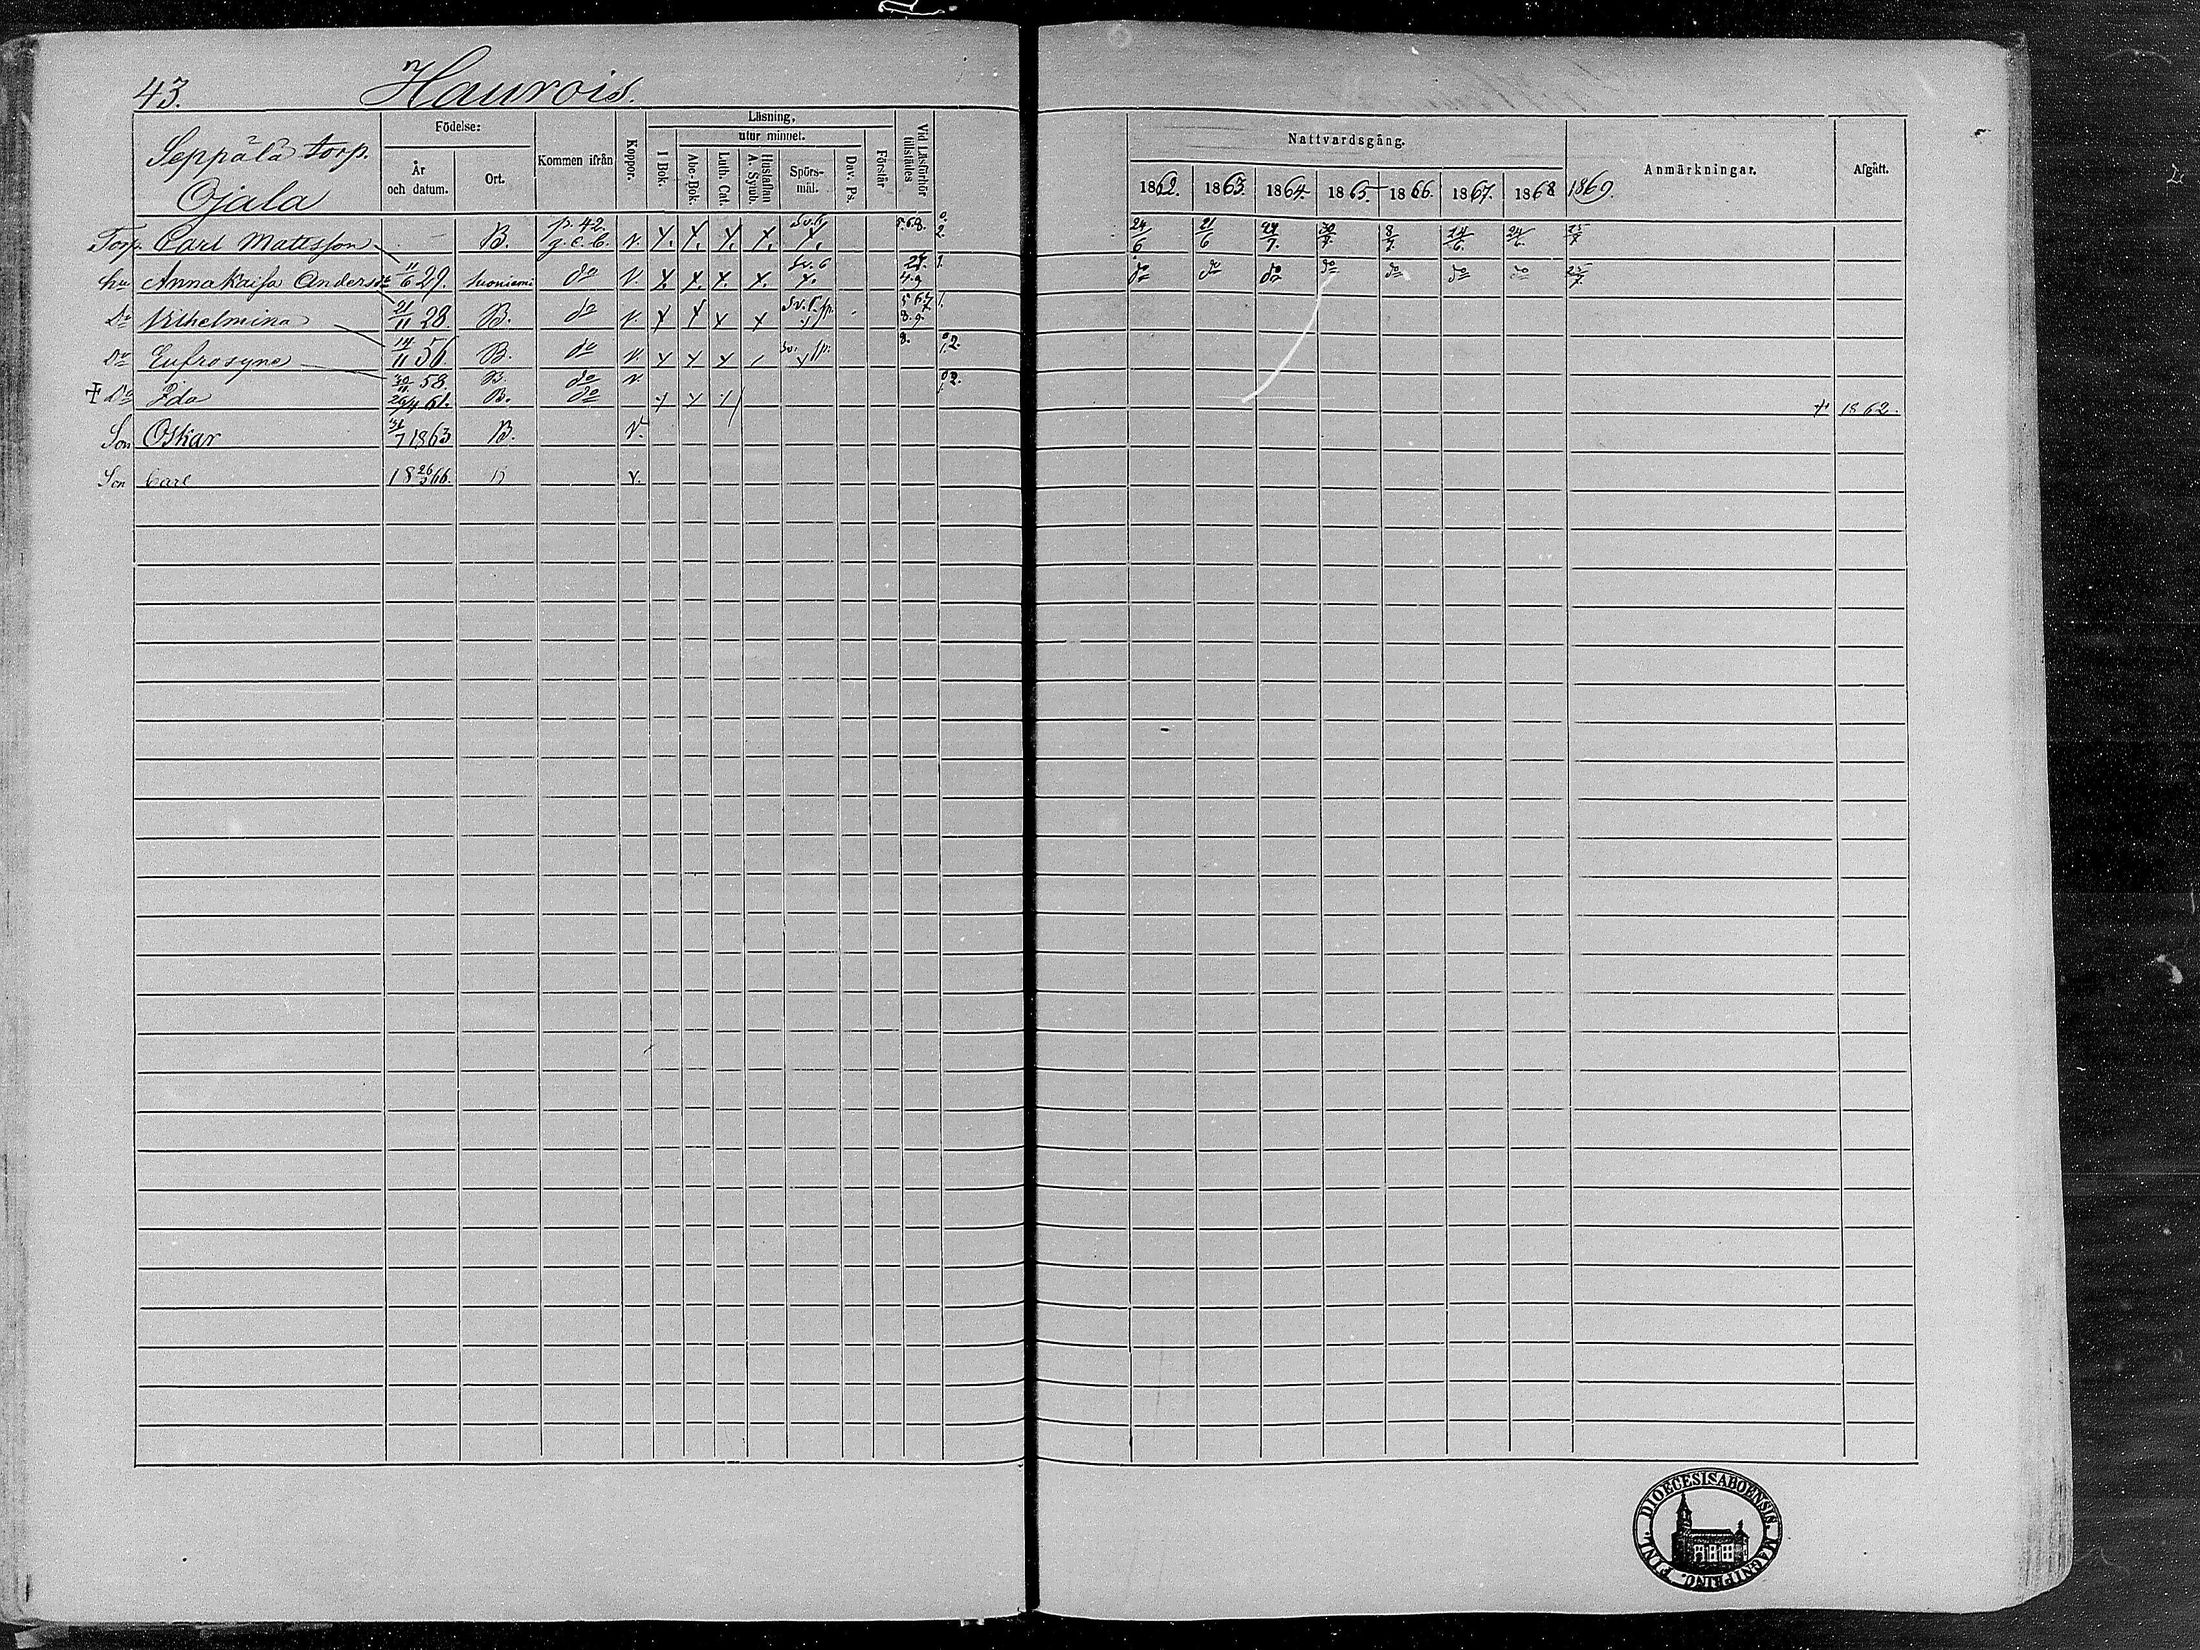 43. Haurois.
Seppälä torp.
Ojala
Födelse:
År och datum.
Ort.
Kommen ifrån
Koppor.
Läsning,
I Bok.
utur minnet.
Abc-Bok.
Luth. Cat.
Hustaflan A. Symb.
Spörs-mål.
Dav. Ps.
Förstår
Vid Läsförhör tillstädes
Nattvardsgång.
1862. 1863. 1864. 1865. 1866. 1867. 1868 1869.
Anmärkningar.
Afgått.
Torp. Carl Mattsson B. p. 42. v. x. x. x. x. 5.6.8. 24/6 21/6 24/7. 30/7. 8/7. 24/6. 24/6. 25/7
hu Anna Kaisa Andersdr 11/6 29. Suoniemi do v. x. x. x. x. x. do do do do do do do 25/7
Dr Vilhelmina 21/11 28. B. do v. x x x x
Dr Eufrosyne 14/11 56. B. do v. x x x 8.
30/11 58. B. do v.
† Dr Ida 29/4 61. B. do x x † 1862.
Son Oskar 31/7 1863 B. v.
Son Carl 18 26/3 66. B v.
DIOECESIS ABOENSIS. MAGNI PRINC. FINL.